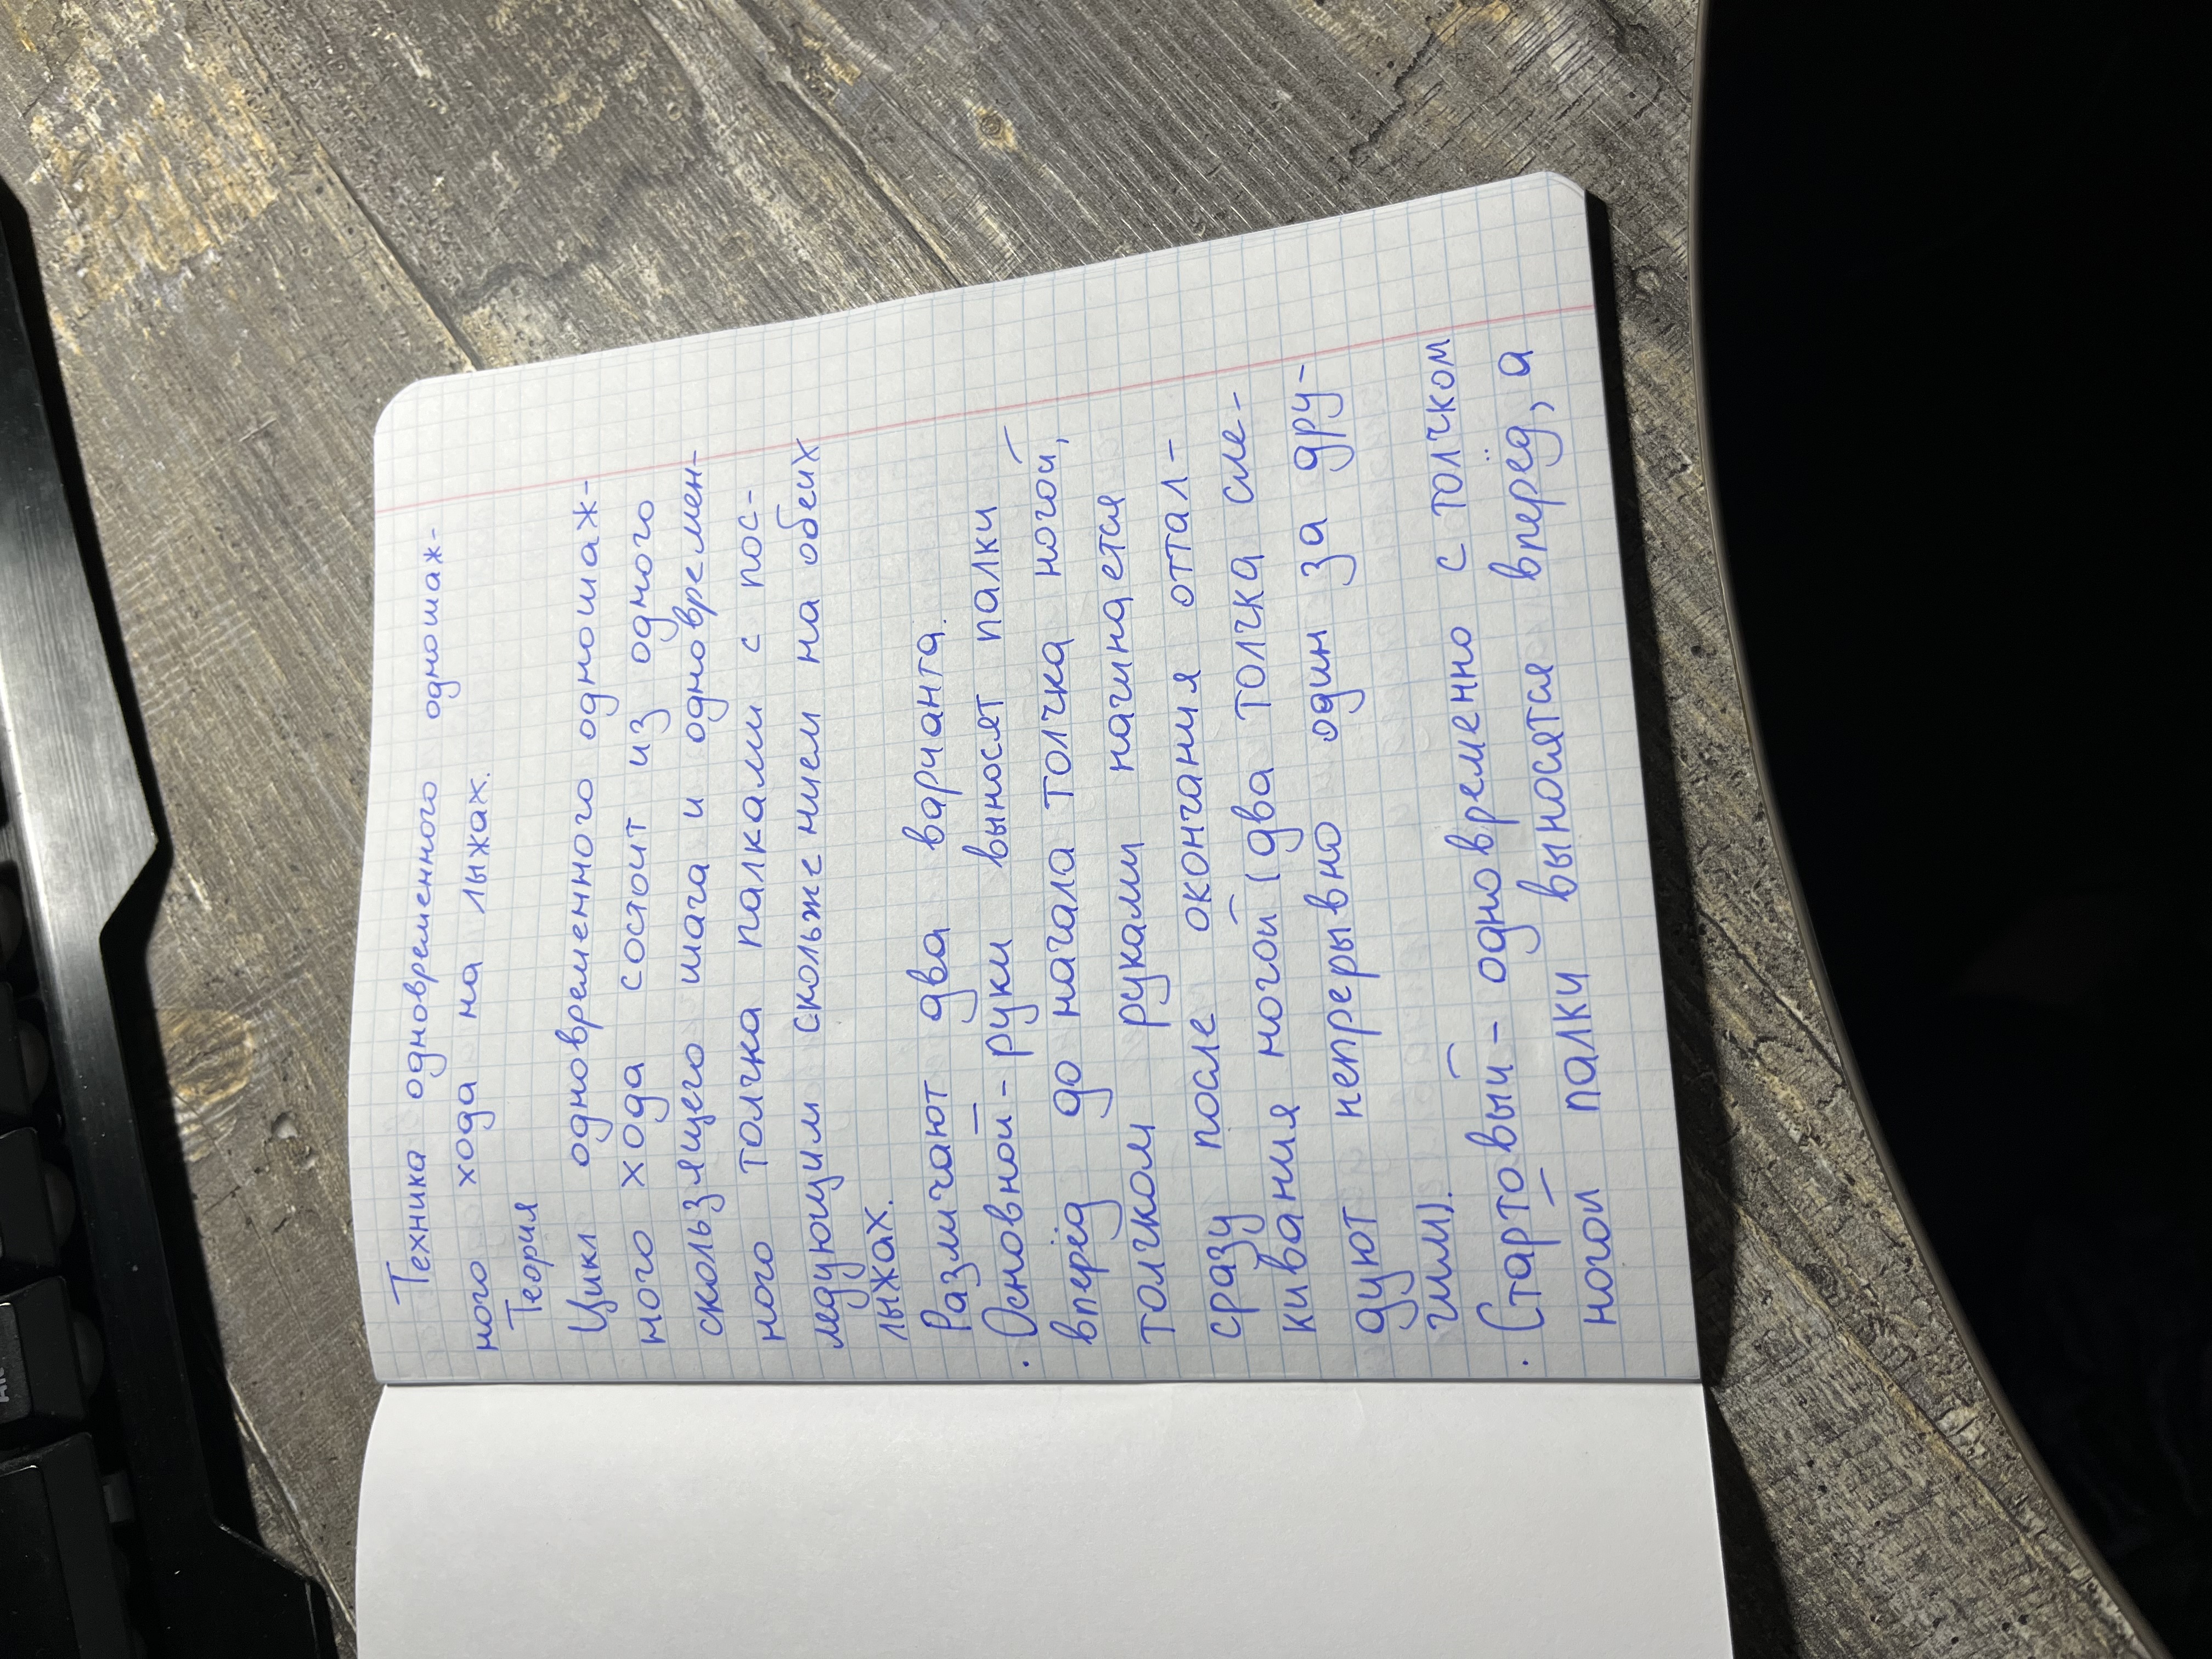 Техника одновременного одношаж-
ного хода на лыжах.
Теория
Цикл одновременного одношаж-
ного хода состоит из одного
скользящего шага и одновремен-
ного толчка палками с пос-
ледующим скольжением на обеих
лыжах.
Различают два варианта.
· Основной - руки выносят палки
вперёд до начала толчка ногой,
толчком руками начинается
сразу после окончания оттал-
кивания ногой (два толчка сле-
дуют непрерывно один за дру-
гим).
· Стартовый - одновременно с толчком
ногой палки выносятся вперёд, а